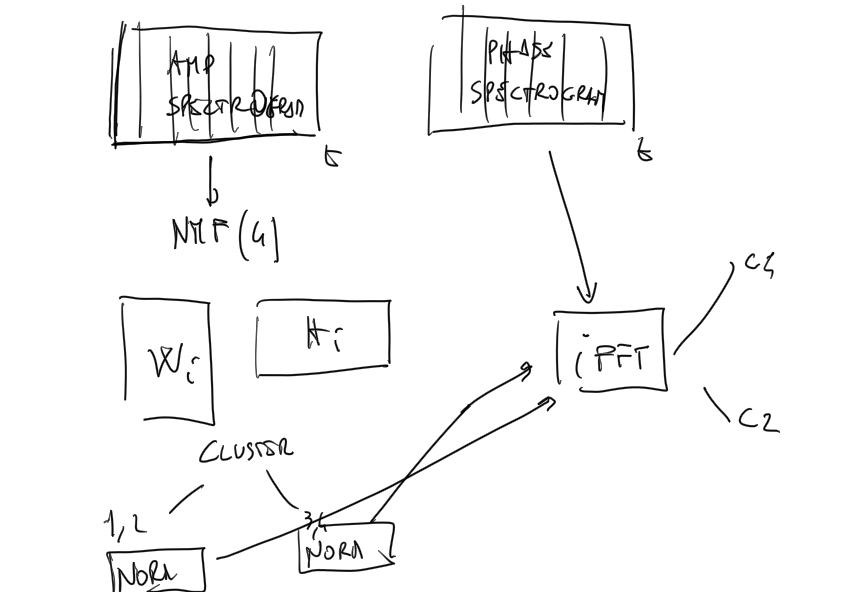 AMP
SPECTROGRAM
t
PHASE
SPECTROGRAM
t
NMF (4)
Wi
Hi
iFFT
C1
C2
CLUSTER
1,2
3,4
NORM
NORM